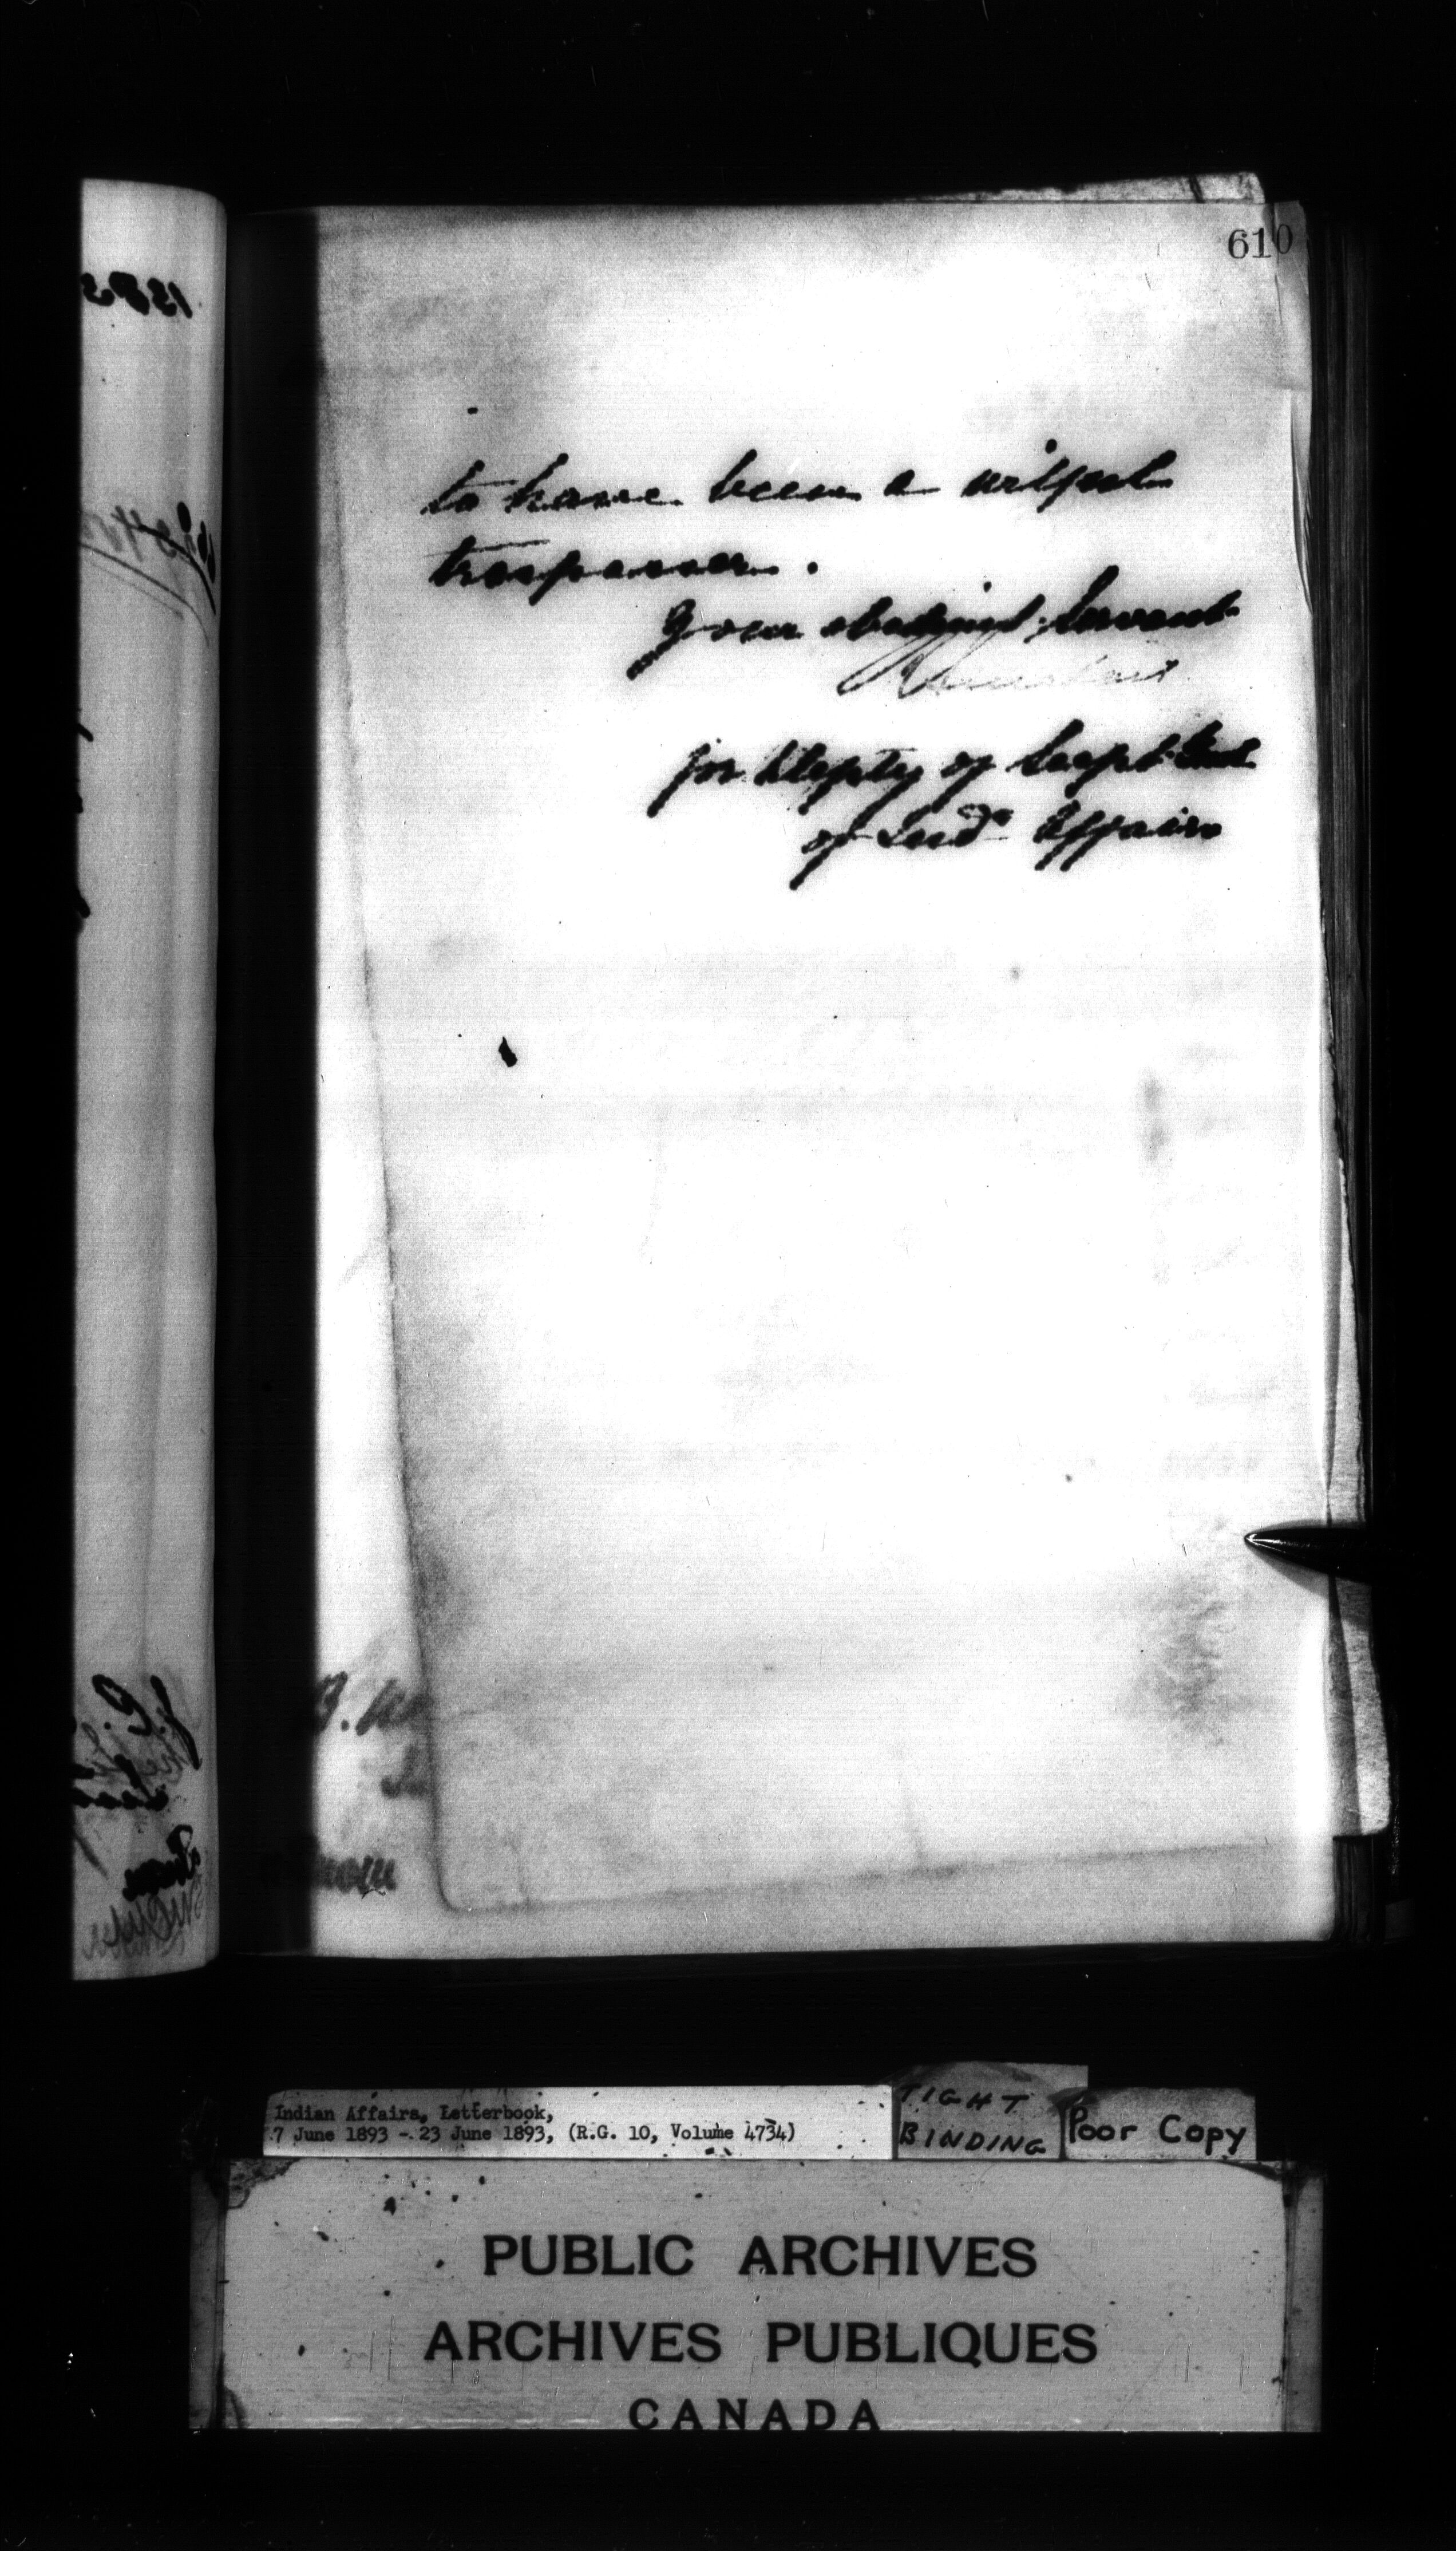 610
to have been a wilful
trespasser.
Your obedient Servant
for Depty of Supt. Genl
of Indn Affairs
Indian Affairs, Letterbook,
7 June 1893 - 23 June 1893, (R.G. 10, Volume 4734)
TIGHT
BINDING
Poor Copy
PUBLIC ARCHIVES
ARCHIVES PUBLIQUES
CANADA